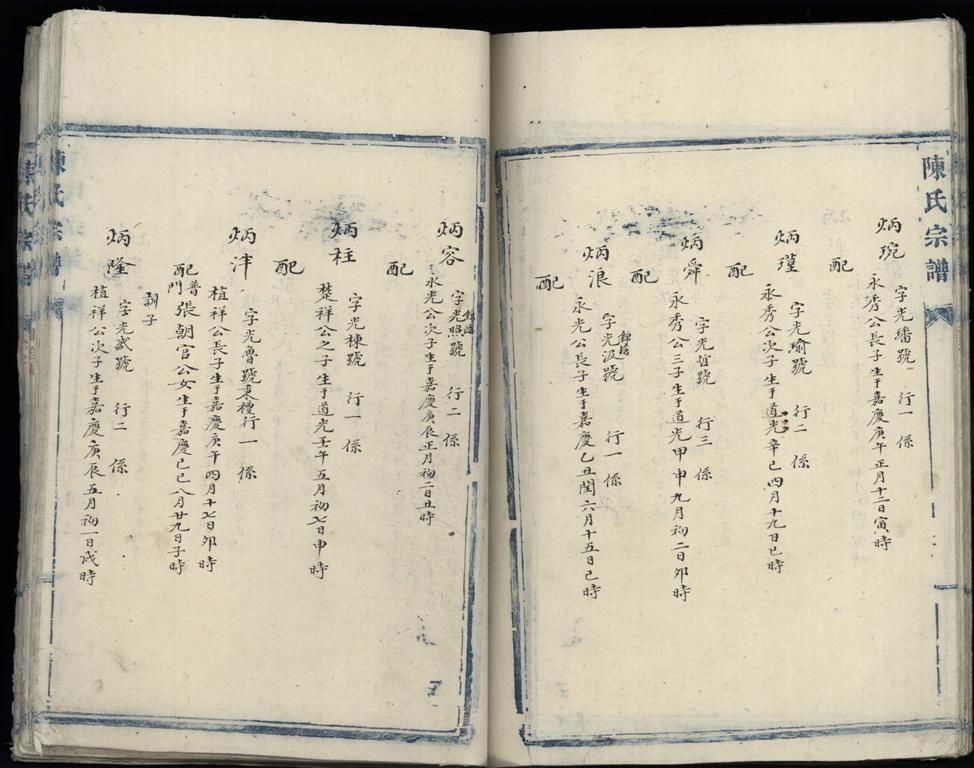 陳氏宗譜
炳琬
字光璠號 行一 係
永秀公長子生于嘉慶庚午正月十二日寅時
配
炳瑾
字光瑜號 行二 係
永秀公次子生于道光辛巳四月十九日巳時
配
炳舜
字光哲號 行三 係
永秀公三子生于道光甲申九月初二日卯時
配
炳浪
字光汲號 行一 係
永光公長子生于嘉慶乙丑閏六月十五日巳時
配
炳容
字光照號 行二 係
永光公次子生于嘉慶庚辰正月初二日丑時
配
炳柱
字光棟號 行一 係
楚祥公之子生于道光壬午五月初七日申時
配
炳沣
字光魯號秉禮行一 係
植祥公長子生于嘉慶庚午四月十七日卯時
配
普門
張朝官公女生于嘉慶己巳八月廿九日子時
嗣子
炳隆
字光盛號 行二 係
植祥公次子生于嘉慶庚辰五月初一日戌時
陳氏宗譜
陳氏宗譜